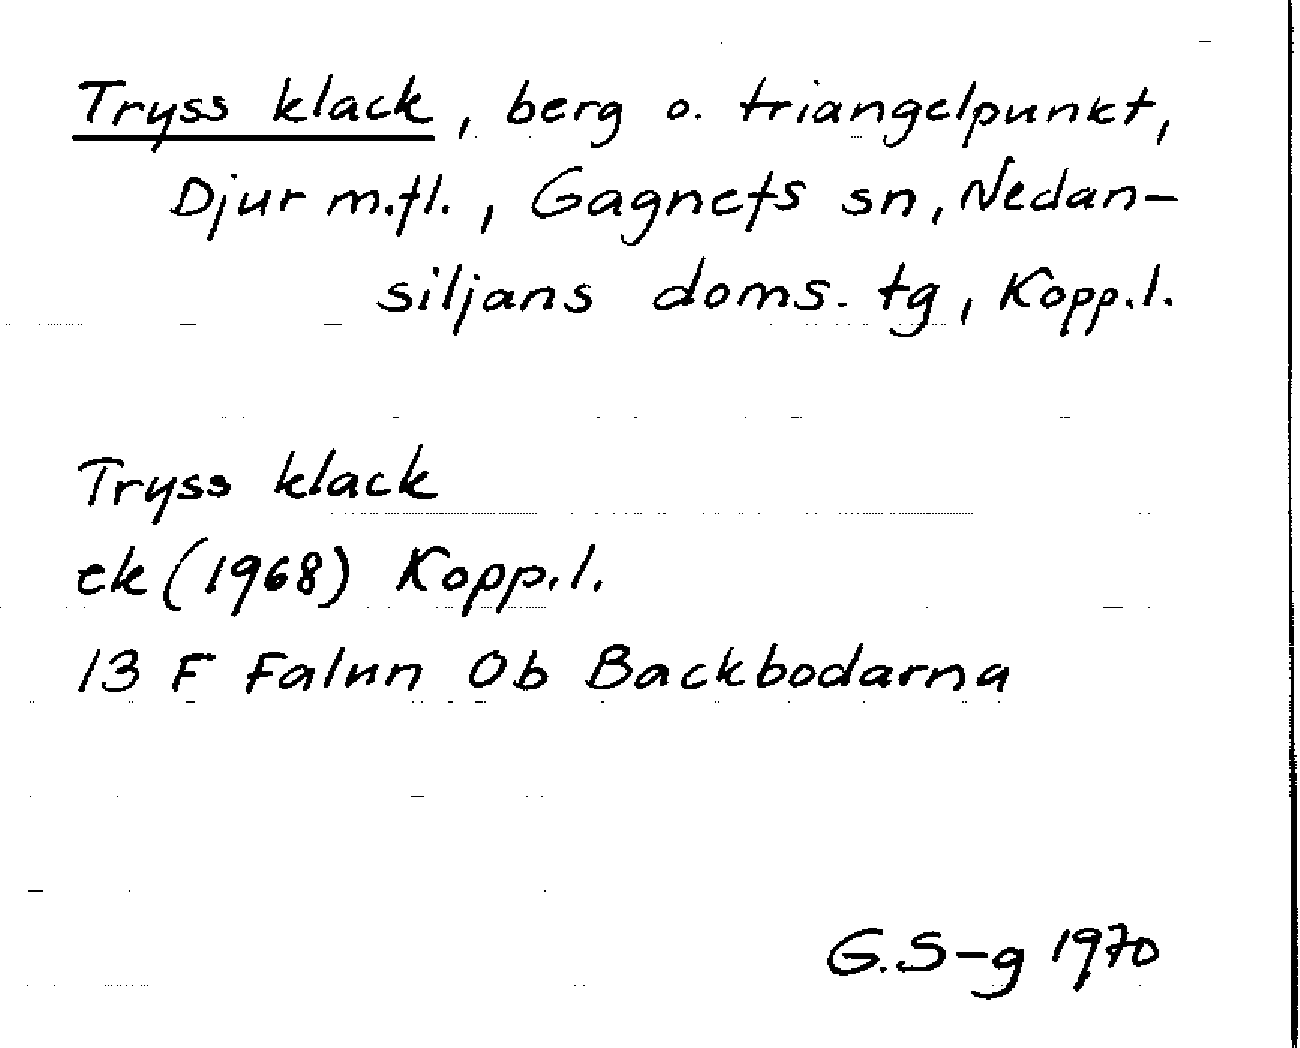 Tryss klack, berg o. triangelpunkt,
Djur m.fl., Gagnefs sn, Nedan-
siljans doms. tg, Kopp.l.
Tryss klack
ek (1968) Kopp.l.
13 F Falun Ob Backbodarna
G.S-g 1970